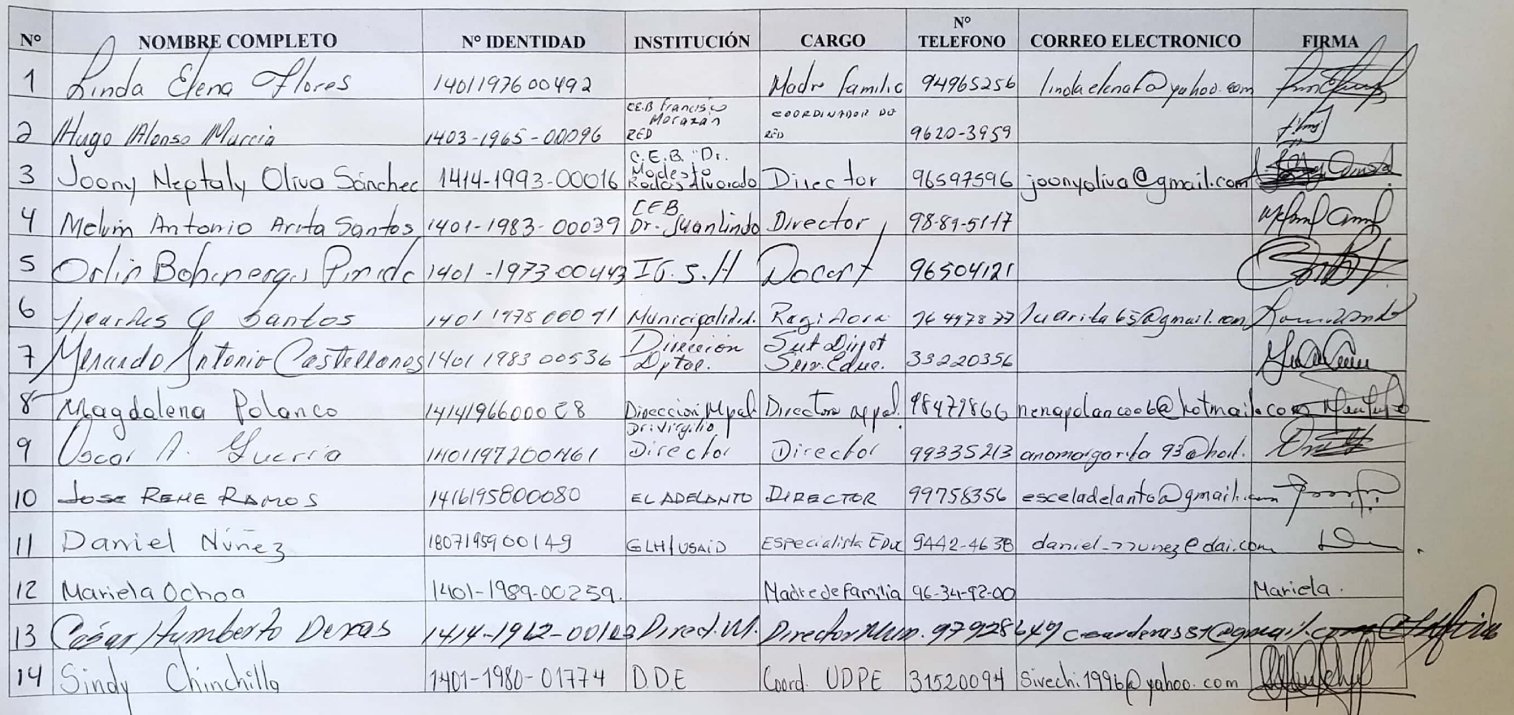 Nº NOMBRE COMPLETO Nº IDENTIDAD INSTITUCIÓN CARGO Nº TELEFONO CORREO ELECTRONICO FIRMA
1 Linda Elena Flores 1401197600492 Madre familia 94965256 lindaelenaf@yahoo.com
2 Hugo Alonso Murcia 1403-1965-00096 C.E.B Francisco Morazán RED COORDINADOR DE RED 9620-3959
3 Joony Neptaly Oliva Sánchez 1414-1993-00016 C.E.B. "Dr. Modesto Rodas Alvarado Director 96597596 joonyoliva@gmail.com
4 Melvin Antonio Arita Santos 1401-1983-00039 CEB Dr. Juan Lindo Director 98-89-5117
5 Orlin 1401-1973-00443 I.G.S.H Docent 96504121
6 Santos Municipalidad. Regidora
7 Antonio Castellanos 1401 1983 00536 Dirección Dptal. Sub Direct Serv. Educ. 33220356
8 Magdalena Polanco Dirección Mpal Directora 98479866 nenapolanco06@hotmail.com
9 Oscar A. 1401197200461 Dr. Virgilio Director Director 99335213 anamargarita93@hot.
10 JOSE RENE RAMOS 1416195800080 EL ADELANTO DIRECTOR 99758356 esceladelanto@gmail.com
11 Daniel Núñez 1807195900149 GLH/USAID Especialista EDU 9442-4638 daniel_nunez@dai.com
12 Mariela Ochoa 1401-1989-00259. Madre de familia 96-34-92-00 Mariela.
13 César Humberto Deras Direct. M. Director Mun. 97928649
14 Sindy Chinchilla 1401-1980-01774 D.D.E Coord. UDPE 31520094 Sivechi.1996@yahoo.com